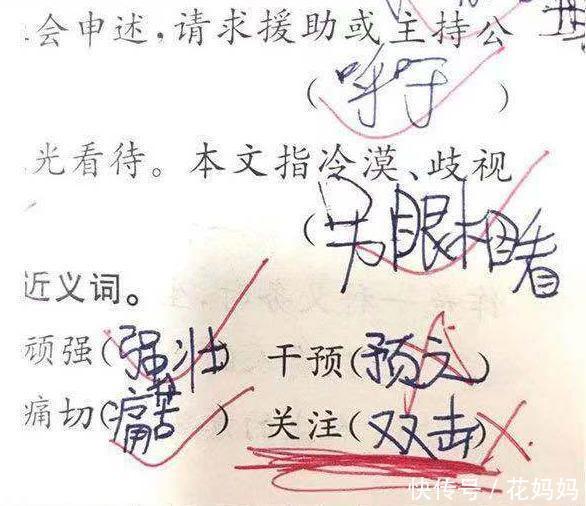 会申述，请求援助或主持公
（呼吁）
光看待。本文指冷漠、歧视
（另眼相看
近义词。
顽强（强壮） 干预（预文）
痛切（痛苦） 关注（双击）
快传号 / 花妈妈